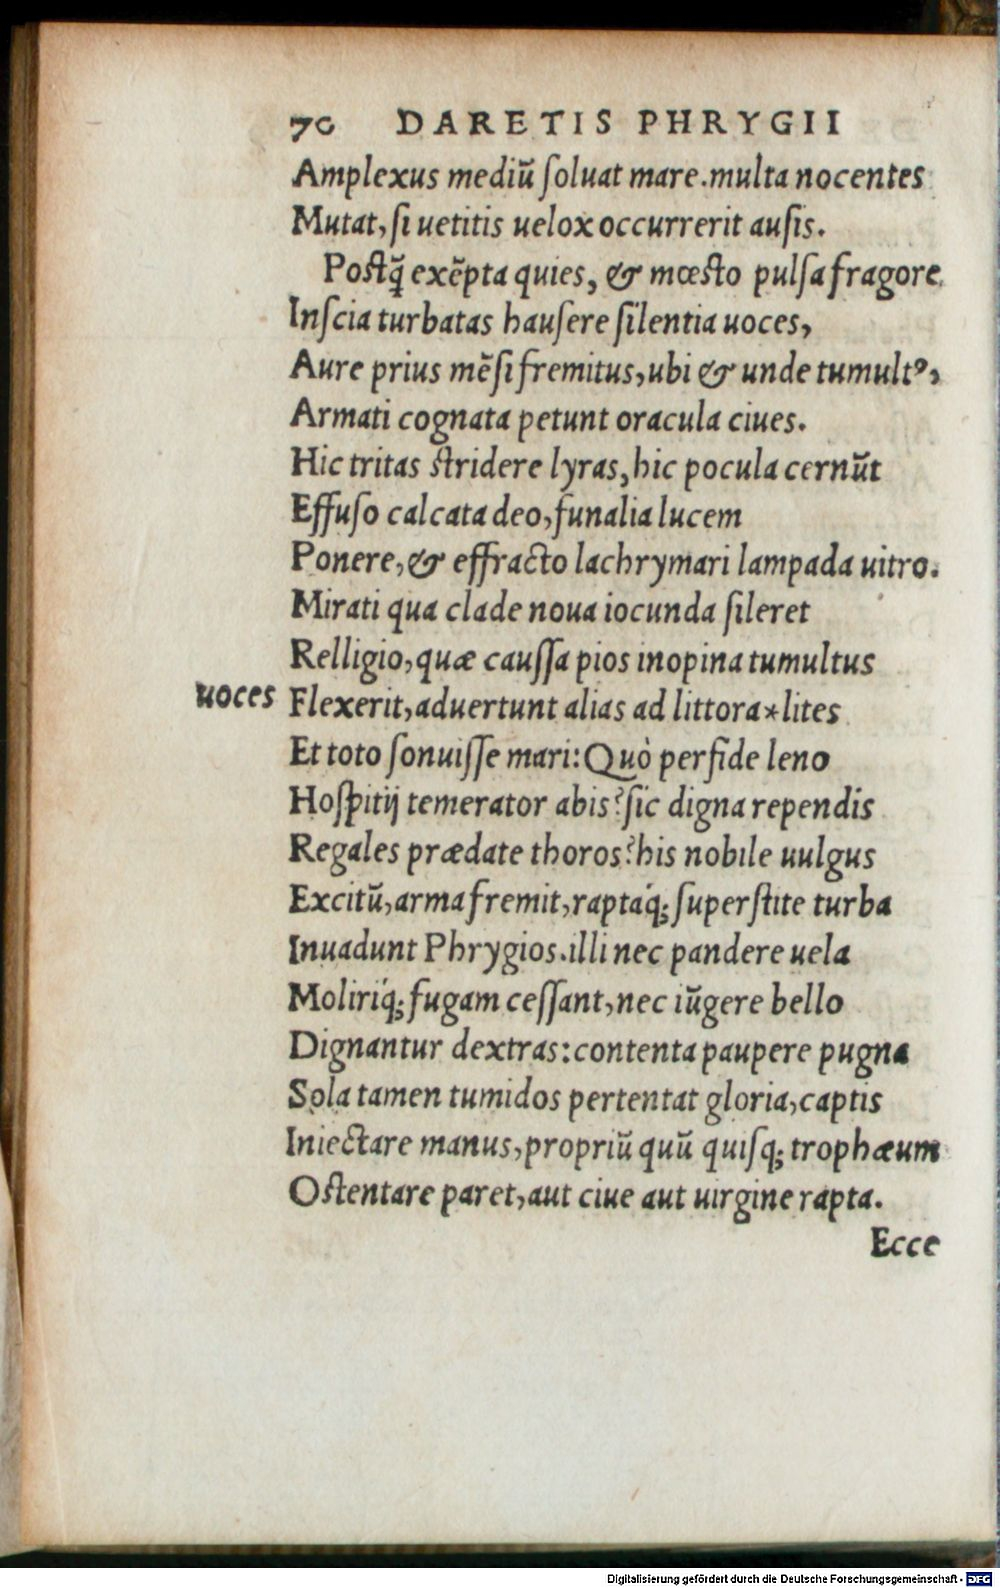 70 DARETIS PHRYGII
Amplexus mediū ſoluat mare.multa nocentes
Mutat, ſi uetitis uelox occurrerit auſis.
Poſtq̃ exēpta quies, & mœſto pulſa fragore
Inſcia turbatas hauſere ſilentia uoces,
Aure prius mēſi fremitus, ubi & unde tumultꝰ,
Armati cognata petunt oracula ciues.
Hic tritas ſtridere lyras, hic pocula cernūt
Effuſo calcata deo, funalia lucem
Ponere, & effracto lachrymari lampada uitro.
Mirati qua clade noua iocunda ſileret
Relligio, quæ cauſſa pios inopina tumultus
uoces Flexerit, aduertunt alias ad littora*lites
Et toto ſonuiſſe mari: Quò perfide leno
Hoſpitij temerator abis? ſic digna rependis
Regales prædate thoros? his nobile uulgus
Excitū, arma fremit, raptáq; ſuperſtite turba
Inuadunt Phrygios.illi nec pandere uela
Moliriq́; fugam ceſſant, nec iūgere bello
Dignantur dextras: contenta paupere pugna
Sola tamen tumidos pertentat gloria, captis
Iniectare manus, propriū quū quiſq; trophæum
Oſtentare paret, aut ciue aut uirgine rapta.
Ecce
Digitalisierung gefördert durch die Deutsche Forschungsgemeinschaft - DFG